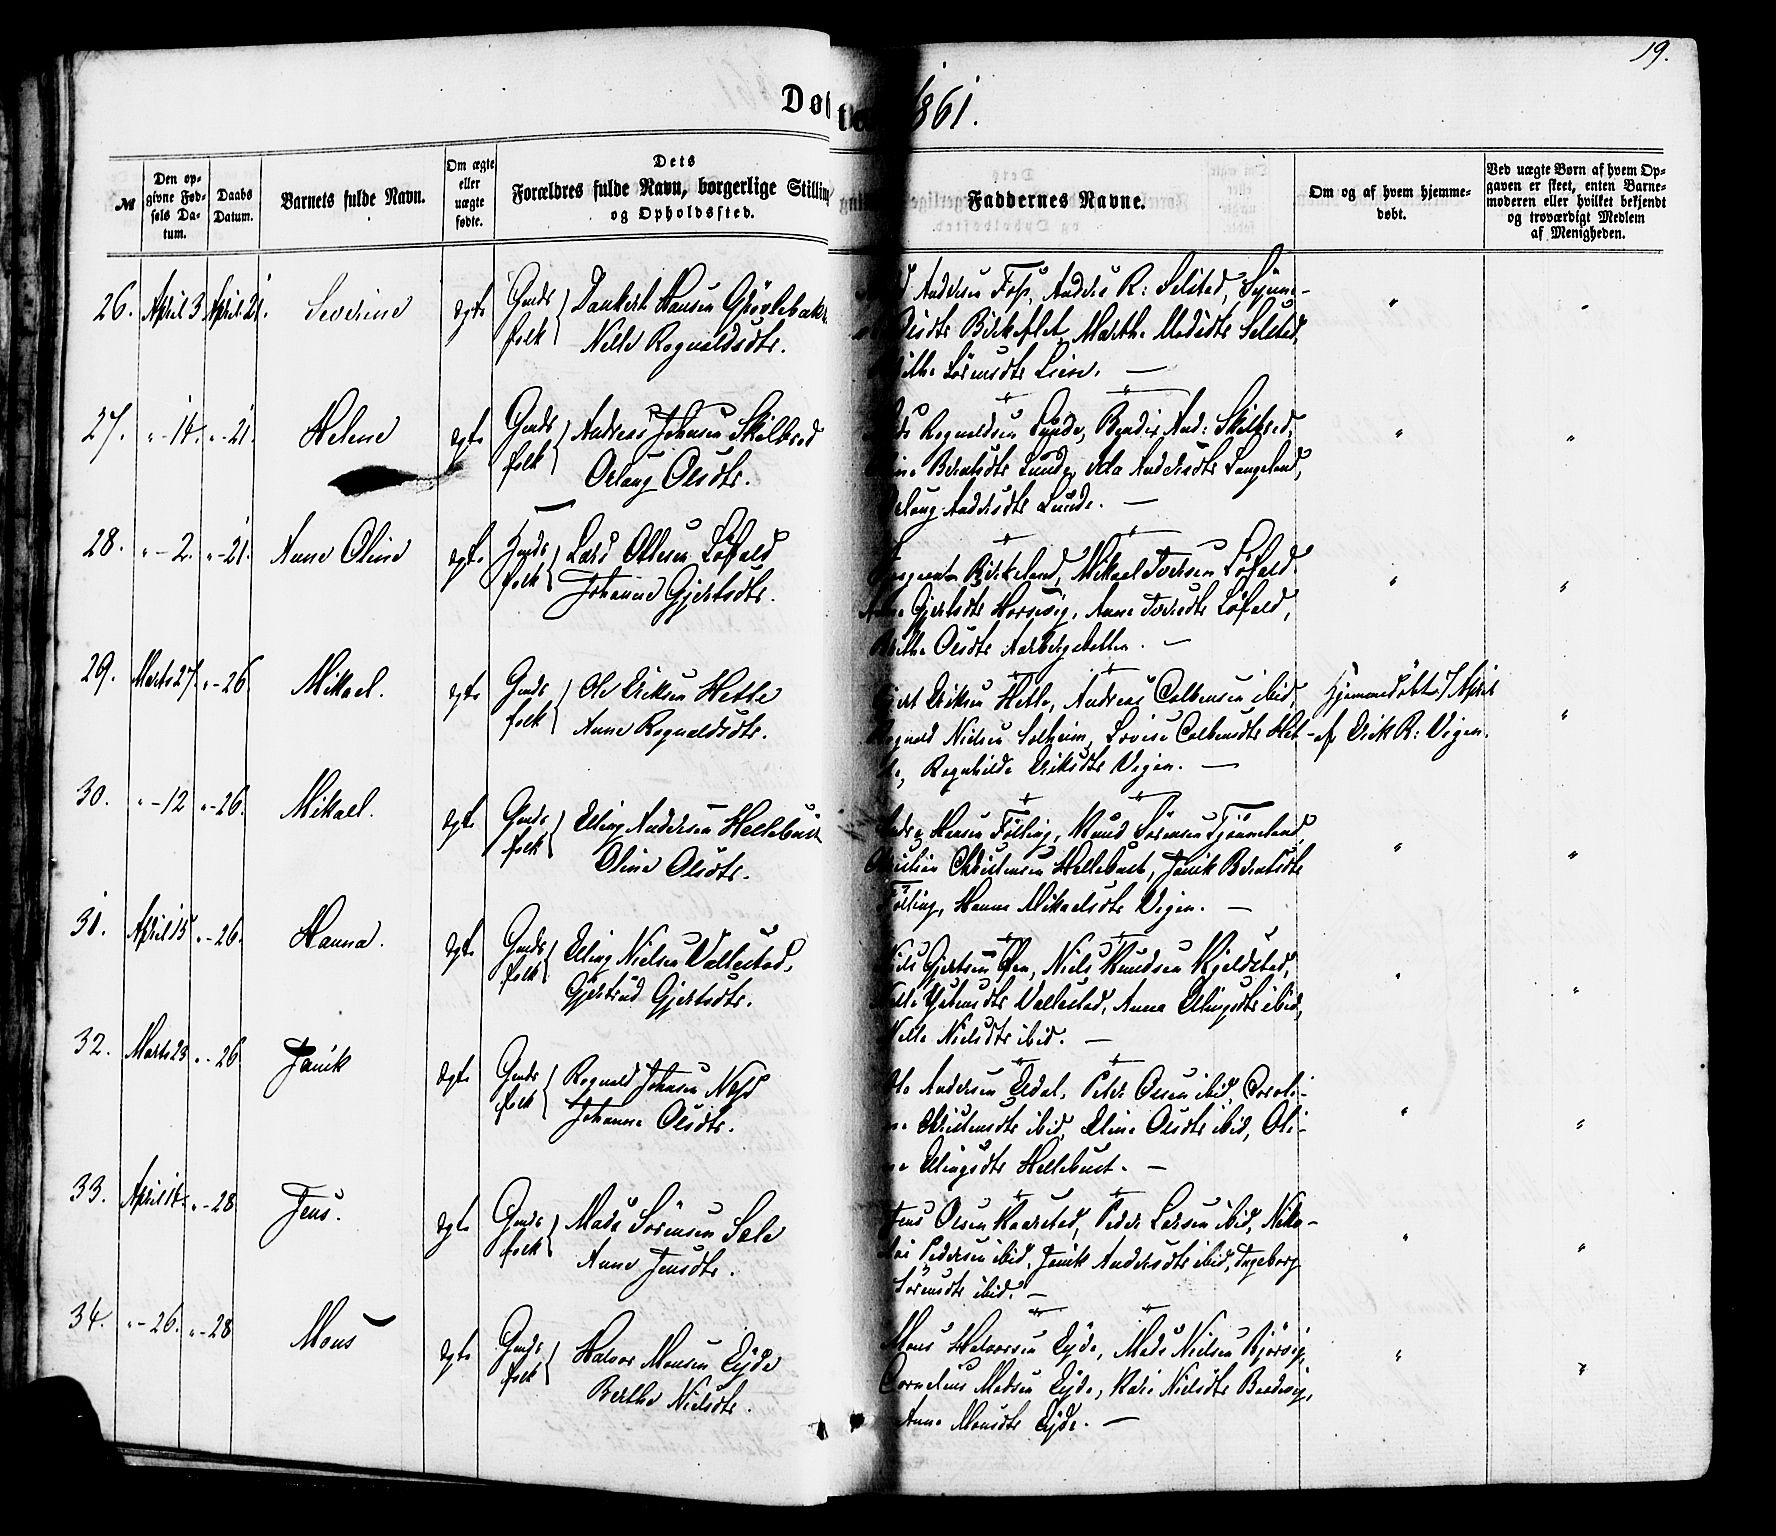 19.
Døbte 1861.
№
Den opgivne Fødsels Datum.
Daabs Datum.
Barnets fulde Navn.
Om ægte eller uægte fødte.
Dets Forældres fulde Navn, borgerlige Stilling og Opholdssted.
Faddernes Navne.
Om og af hvem hjemmedøbt.
Ved uægte Børn af hvem Opgaven er skeet, enten Barnemoderen eller hvilket bekjendt og troværdigt Medlem af Menigheden.
26. April 3. April 21. Severine ægte Gmds folk Dankert Hansen
Nille Rognaldsdtr.
Andersen Foss, Anders R: Selstad, Synne-
Olsdtr Birkeflot, Marthe Madsdtr Selstad,
Sørensdtr Lien. —
27. " - 14. " - 21. Helene ægte Gmds folk Andreas Johnsen Skilbred
Oelaug Olsdtr.
Rognaldsen Lunde, And: Skilbred,
Berntsdtr Lunde, Andersdtr Langeland,
Andersdtr Lunde. —
28. " - 2. " - 21. Anne Oline ægte folk Lars Ottesen Løfald
Johanne Gjertsdtr.
Birkeland, Mikael Iversen Løfald.
Gjertsdtr Horsevig, Anne Iversdtr Løfald,
Olsdtr —
29. Marts 27 " - 26 Mikael. ægte Gmds folk Ole Eriksen Hetle
Anne Rognaldsdtr.
Gjert Eriksen Hetle, Andreas Colbensen ibid,
Rognald Nielsen Solheim, Lovise Colbensdtr Het-
le, Rognhilde Eriksdtr Vigen. —
Hjemmedøbt 7 April
af Erik R: Vigen.
30. " - 12 " - 26. Mikael. ægte Gmds folk Elling Andersen Hellebust
Oline Olsdtr.
Hansen Følling, Knud Sørensen Tjønneland
Christian Christensen Hellebust, Janik Berntsdtr
Følling, Hanne Mikaelsdtr Vigen. —
31. April 15 " - 26. Hanna. ægte Gmds folk Elling Nielsen Vallestad,
Gjertrud Gjertsdtr.
Niels Gjertsen Øen, Niels Knudsen Kjeldstad,
Vallestad, Anna Ellingsdtr ibid,
Nille Nielsdtr ibid. —
32. Marts 23 " - 26 Janik ægte Gmds folk Rognald Johnsen Næss
Johanne Olsdtr.
Ole Andersen Eldal, Peder Olsen ibid, Caroli-
ne Christensdtr ibid, Eline Olsdtr ibid, Oli-
ne Ellingsdtr Hellebust. —
33. April 14. " - 28 Jens. ægte Gmds folk Mads Sørensen Sele
Anne Jensdtr.
Jens Olsen Kaarstad, Peder Larsen ibid, Niko-
lai Pedersen ibid, Janik Andersdtr ibid, Ingeborg
Sørensdtr ibid. —
34. " - 26. " - 28 Mons ægte Gmds folk Halvor Monsen Eide
Berthe Nielsdtr.
Mons Halvorsen Eide, Mads Nielsen Bjørvig,
Cornelius Madsen Eide, Kari Nielsdtr
Anne Monsdtr Eide. —